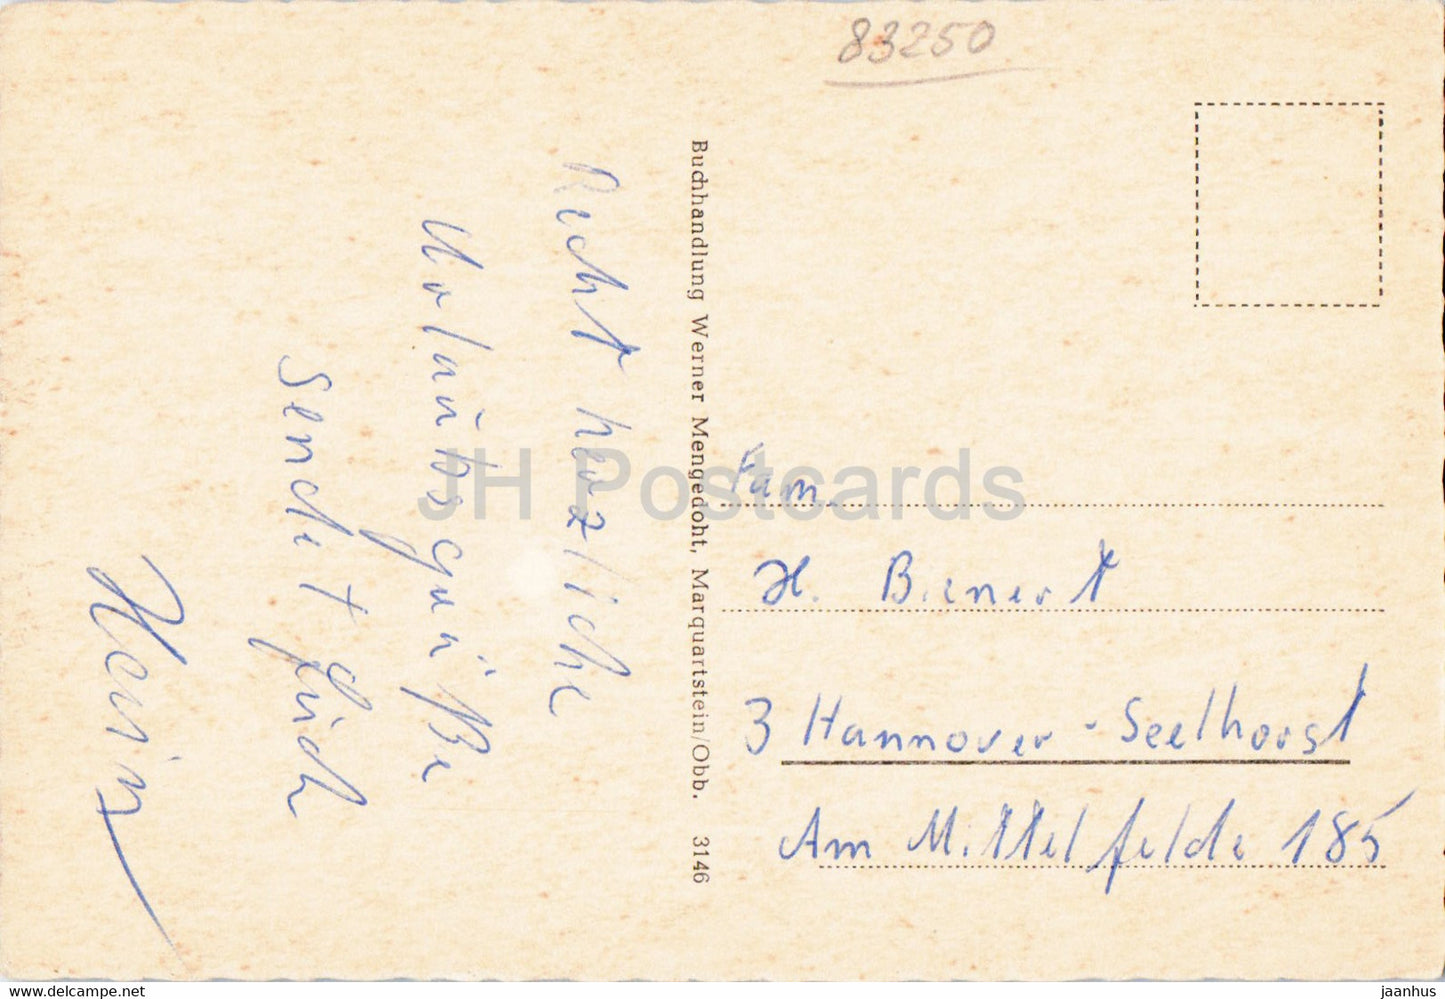 83250
Recht herzliche
Urlaubsgrüße
sendet Euch
Heini
Buchhandlung Werner Mengedoht, Marquartstein/Obb. 3146
Fam.
H. Bienert
3 Hannover-Seelhorst
Am Mittelfelde 185
JH Postcards
https://www.hippostcard.com
jaanhus